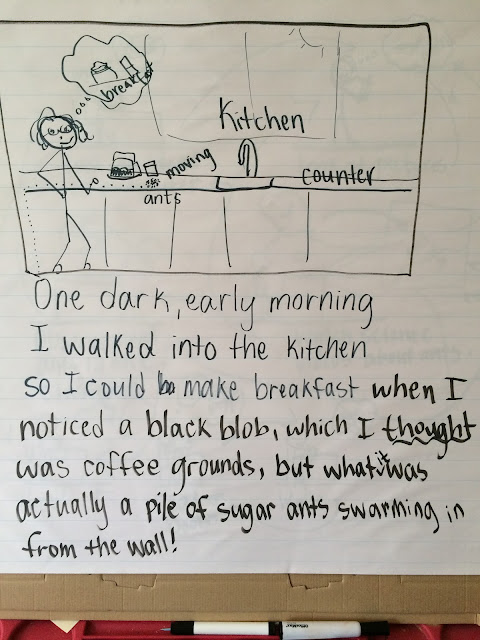 breakfast
Kitchen
moving
counter
ants
One dark, early morning
I walked into the kitchen
so I could make breakfast when I
noticed a black blob, which I thought
was coffee grounds, but what it was
actually a pile of sugar ants swarming in
from the wall!